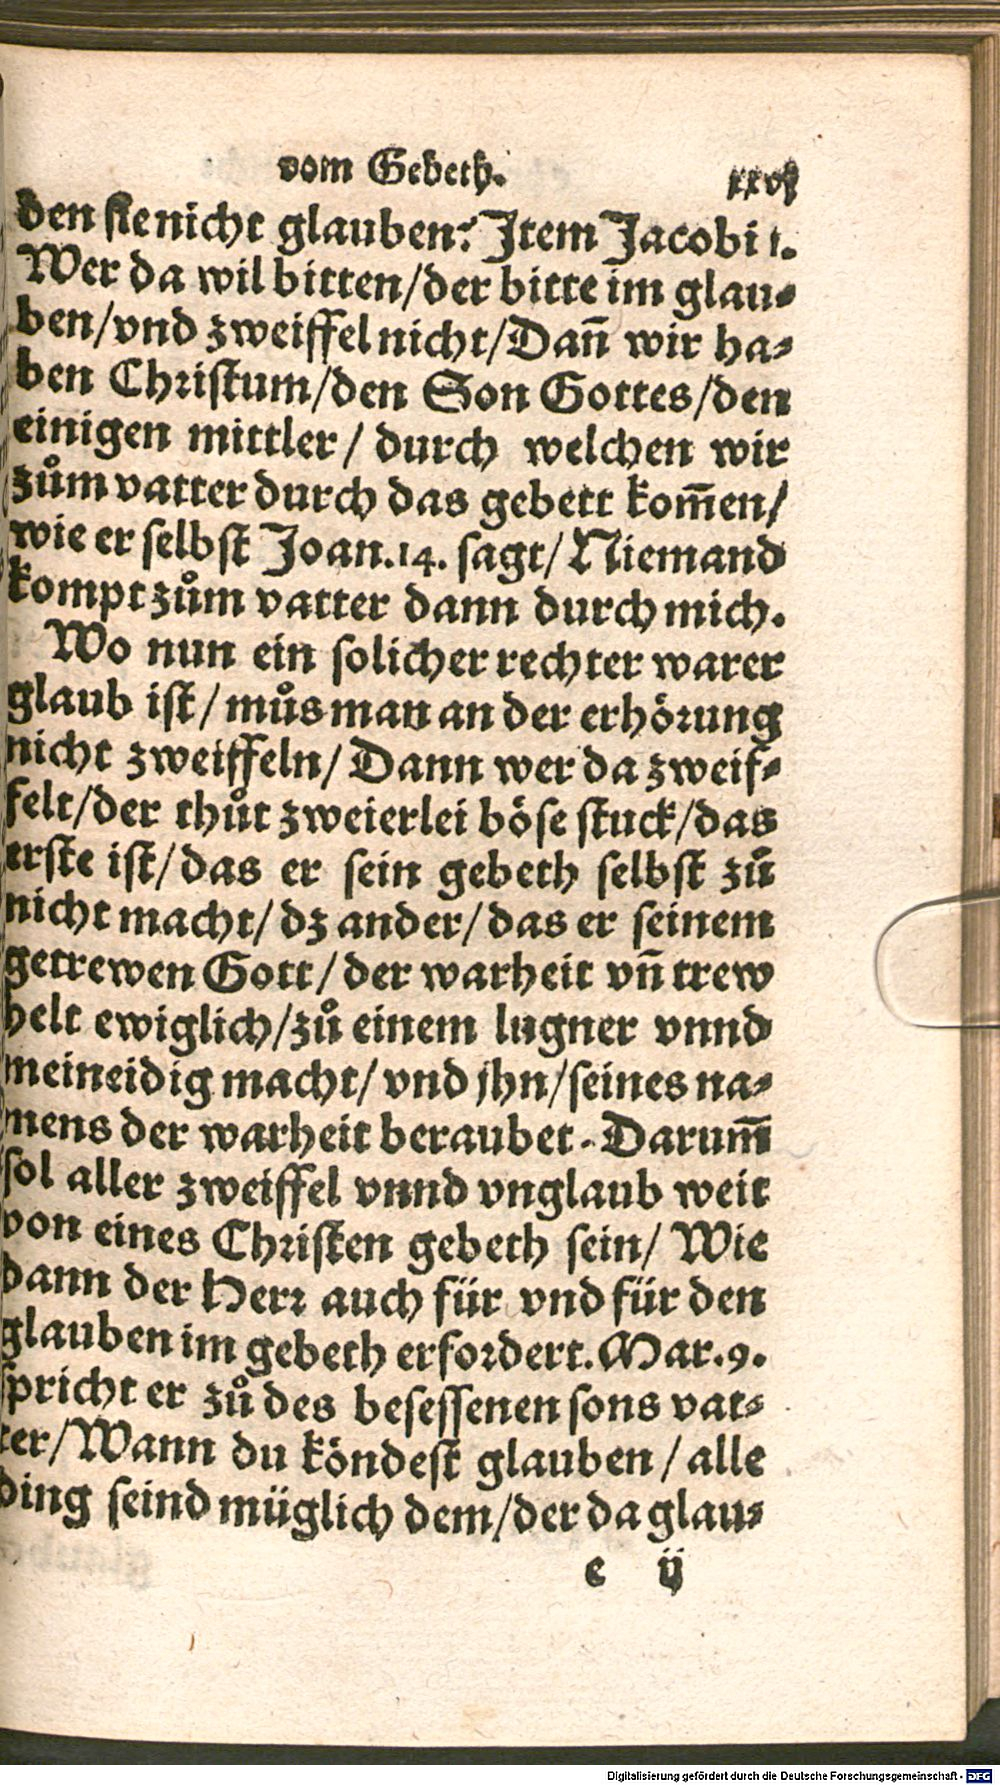 vom Gebeth.
den sie nicht glauben? Item Jacobi 1.
Wer da wil bitten/der bitte im glau⸗
ben/vnd zweiffel nicht/Dañ wir ha⸗
ben Christum/den Son Gottes/den
einigen mittler/ durch welchen wir
zům vatter durch das gebett kom̃en/
wie er selbst Joan.14. sagt/Niemand
kompt zům vatter dann durch mich.
Wo nun ein solicher rechter warer
glaub ist/můs man an der erhörung
nicht zweiffeln/Dann wer da zweif⸗
felt/der thůt zweierlei böse stuck/das
erste ist/das er sein gebeth selbst zů
nicht macht/dz ander/das er seinem
getrewen Gott/der warheit vñ trew
helt ewiglich/zů einem lugner vnnd
meineidig macht/vnd jhn/seines na⸗
mens der warheit beraubet. Darum̃
sol aller zweiffel vnnd vnglaub weit
von eines Christen gebeth sein/ Wie
dann der Herr auch für vnd für den
glauben im gebeth erfordert. Mar.9.
spricht er zů des besessenen sons vat⸗
ter/Wann du köndest glauben/alle
ding seind müglich dem/der da glau⸗
e ij
Digitalisierung gefördert durch die Deutsche Forschungsgemeinschaft - DFG